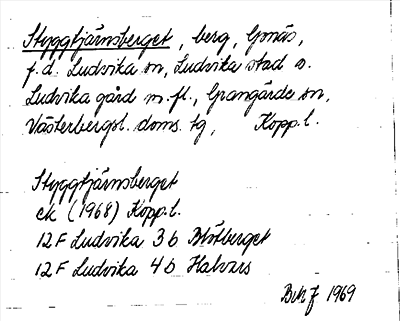 Styggtjärnsberget, berg, Gonäs,
f.d. Ludvika sn, Ludvika stad o.
Ludvika gård m.fl., Grangärde sn,
Västerbergsl. doms. tg, Kopp.l.
Styggtjärnsberget
ek (1968) Kopp.l.
12 F Ludvika 3 b Blötberget
12 F Ludvika 4 b Halvars
1969